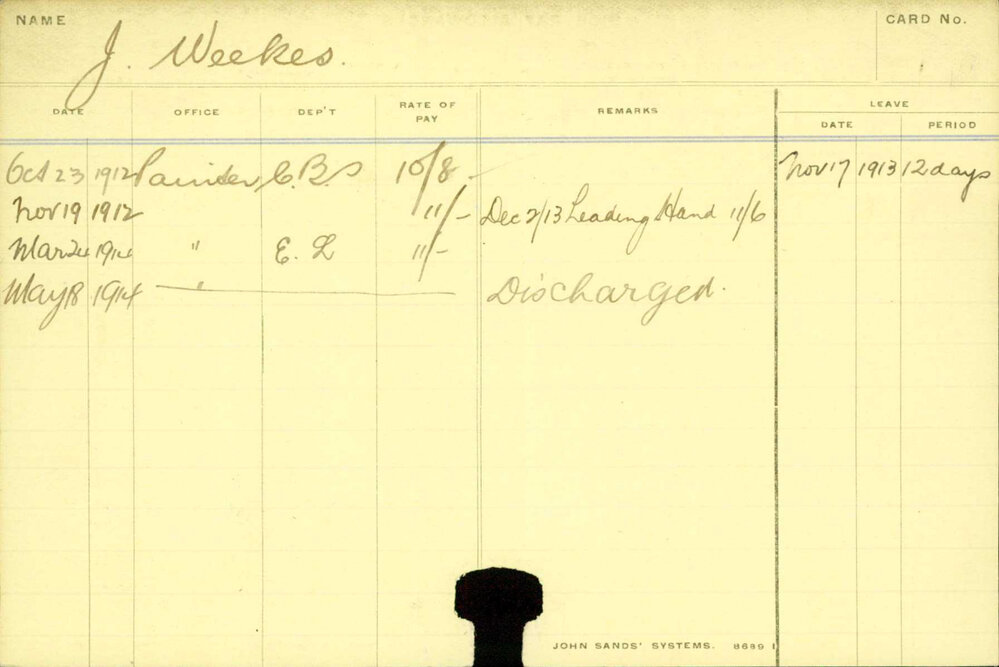 NAME
J. Weekes.
CARD No.
DATE OFFICE DEP'T RATE OF PAY REMARKS LEAVE
DATE PERIOD
Oct 23 1912 Painter C.B.S 10/8 - Nov 17 1913 12 days
Nov 19 1912 11/- Dec 2/13 Leading Hand 11/6
Mar 24 1914 " E. L 11/-
May 18 1914 " Discharged.
JOHN SANDS' SYSTEMS. 8689 1